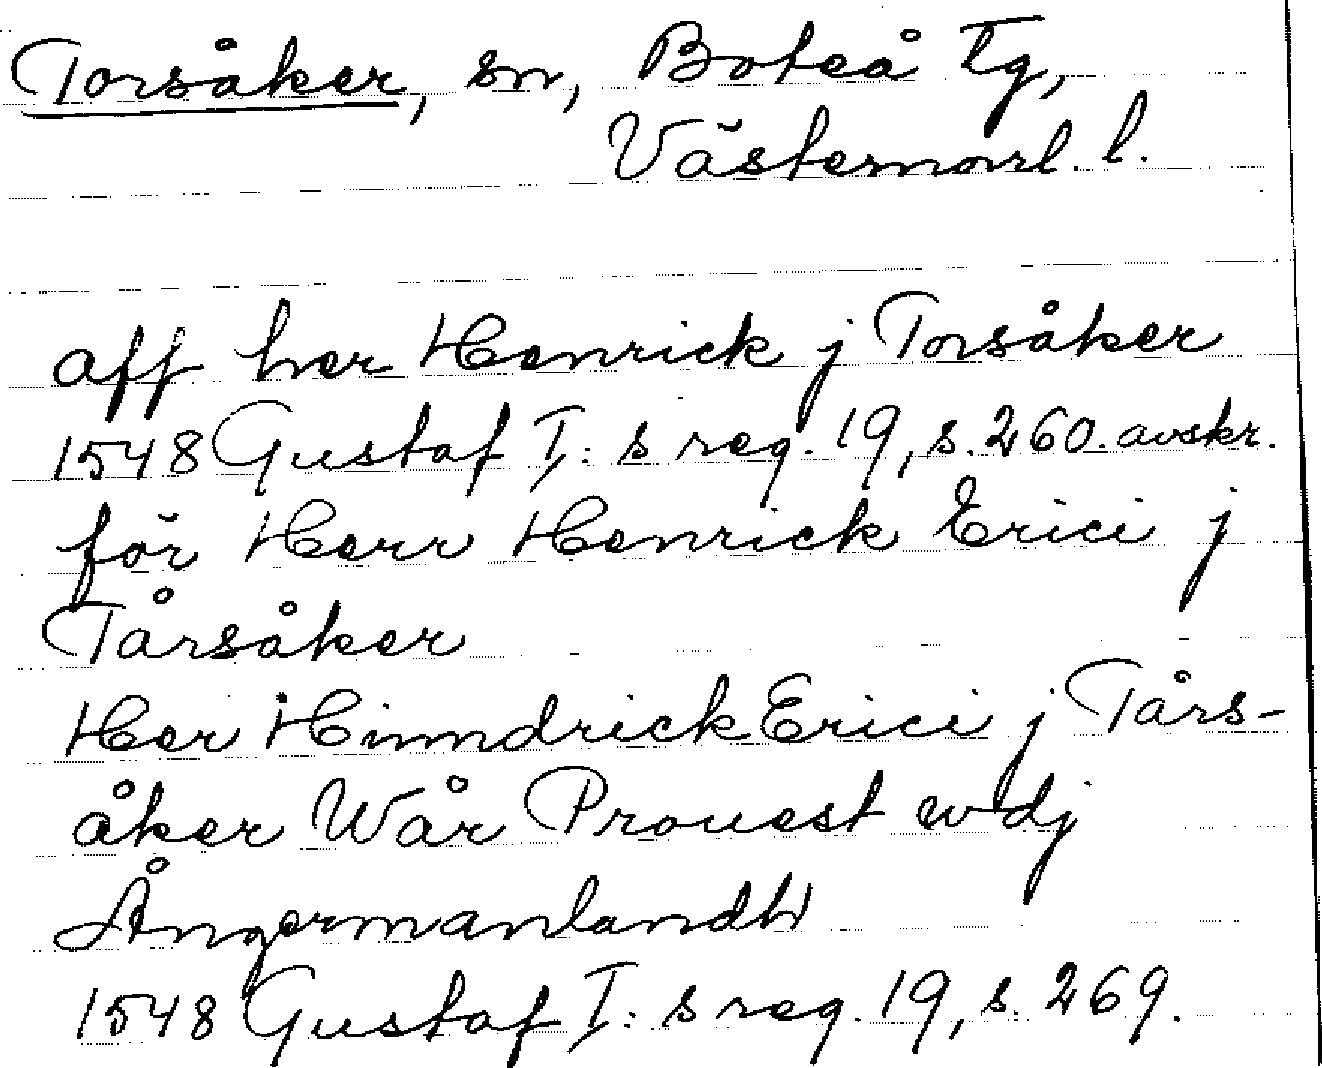 Torsåker, sn, Boteå tg,
Västernorrl. l.
aff her Henrick j Torsåker
1548 Gustaf I: s reg. 19, s. 260. avskr.
för Herr Henrick Erici j
Tårsåker
Her Hinndrick Erici j Tårs-
åker Wår Prouest wdj
Ångermanlandh
1548 Gustaf I: s reg. 19, s. 269.